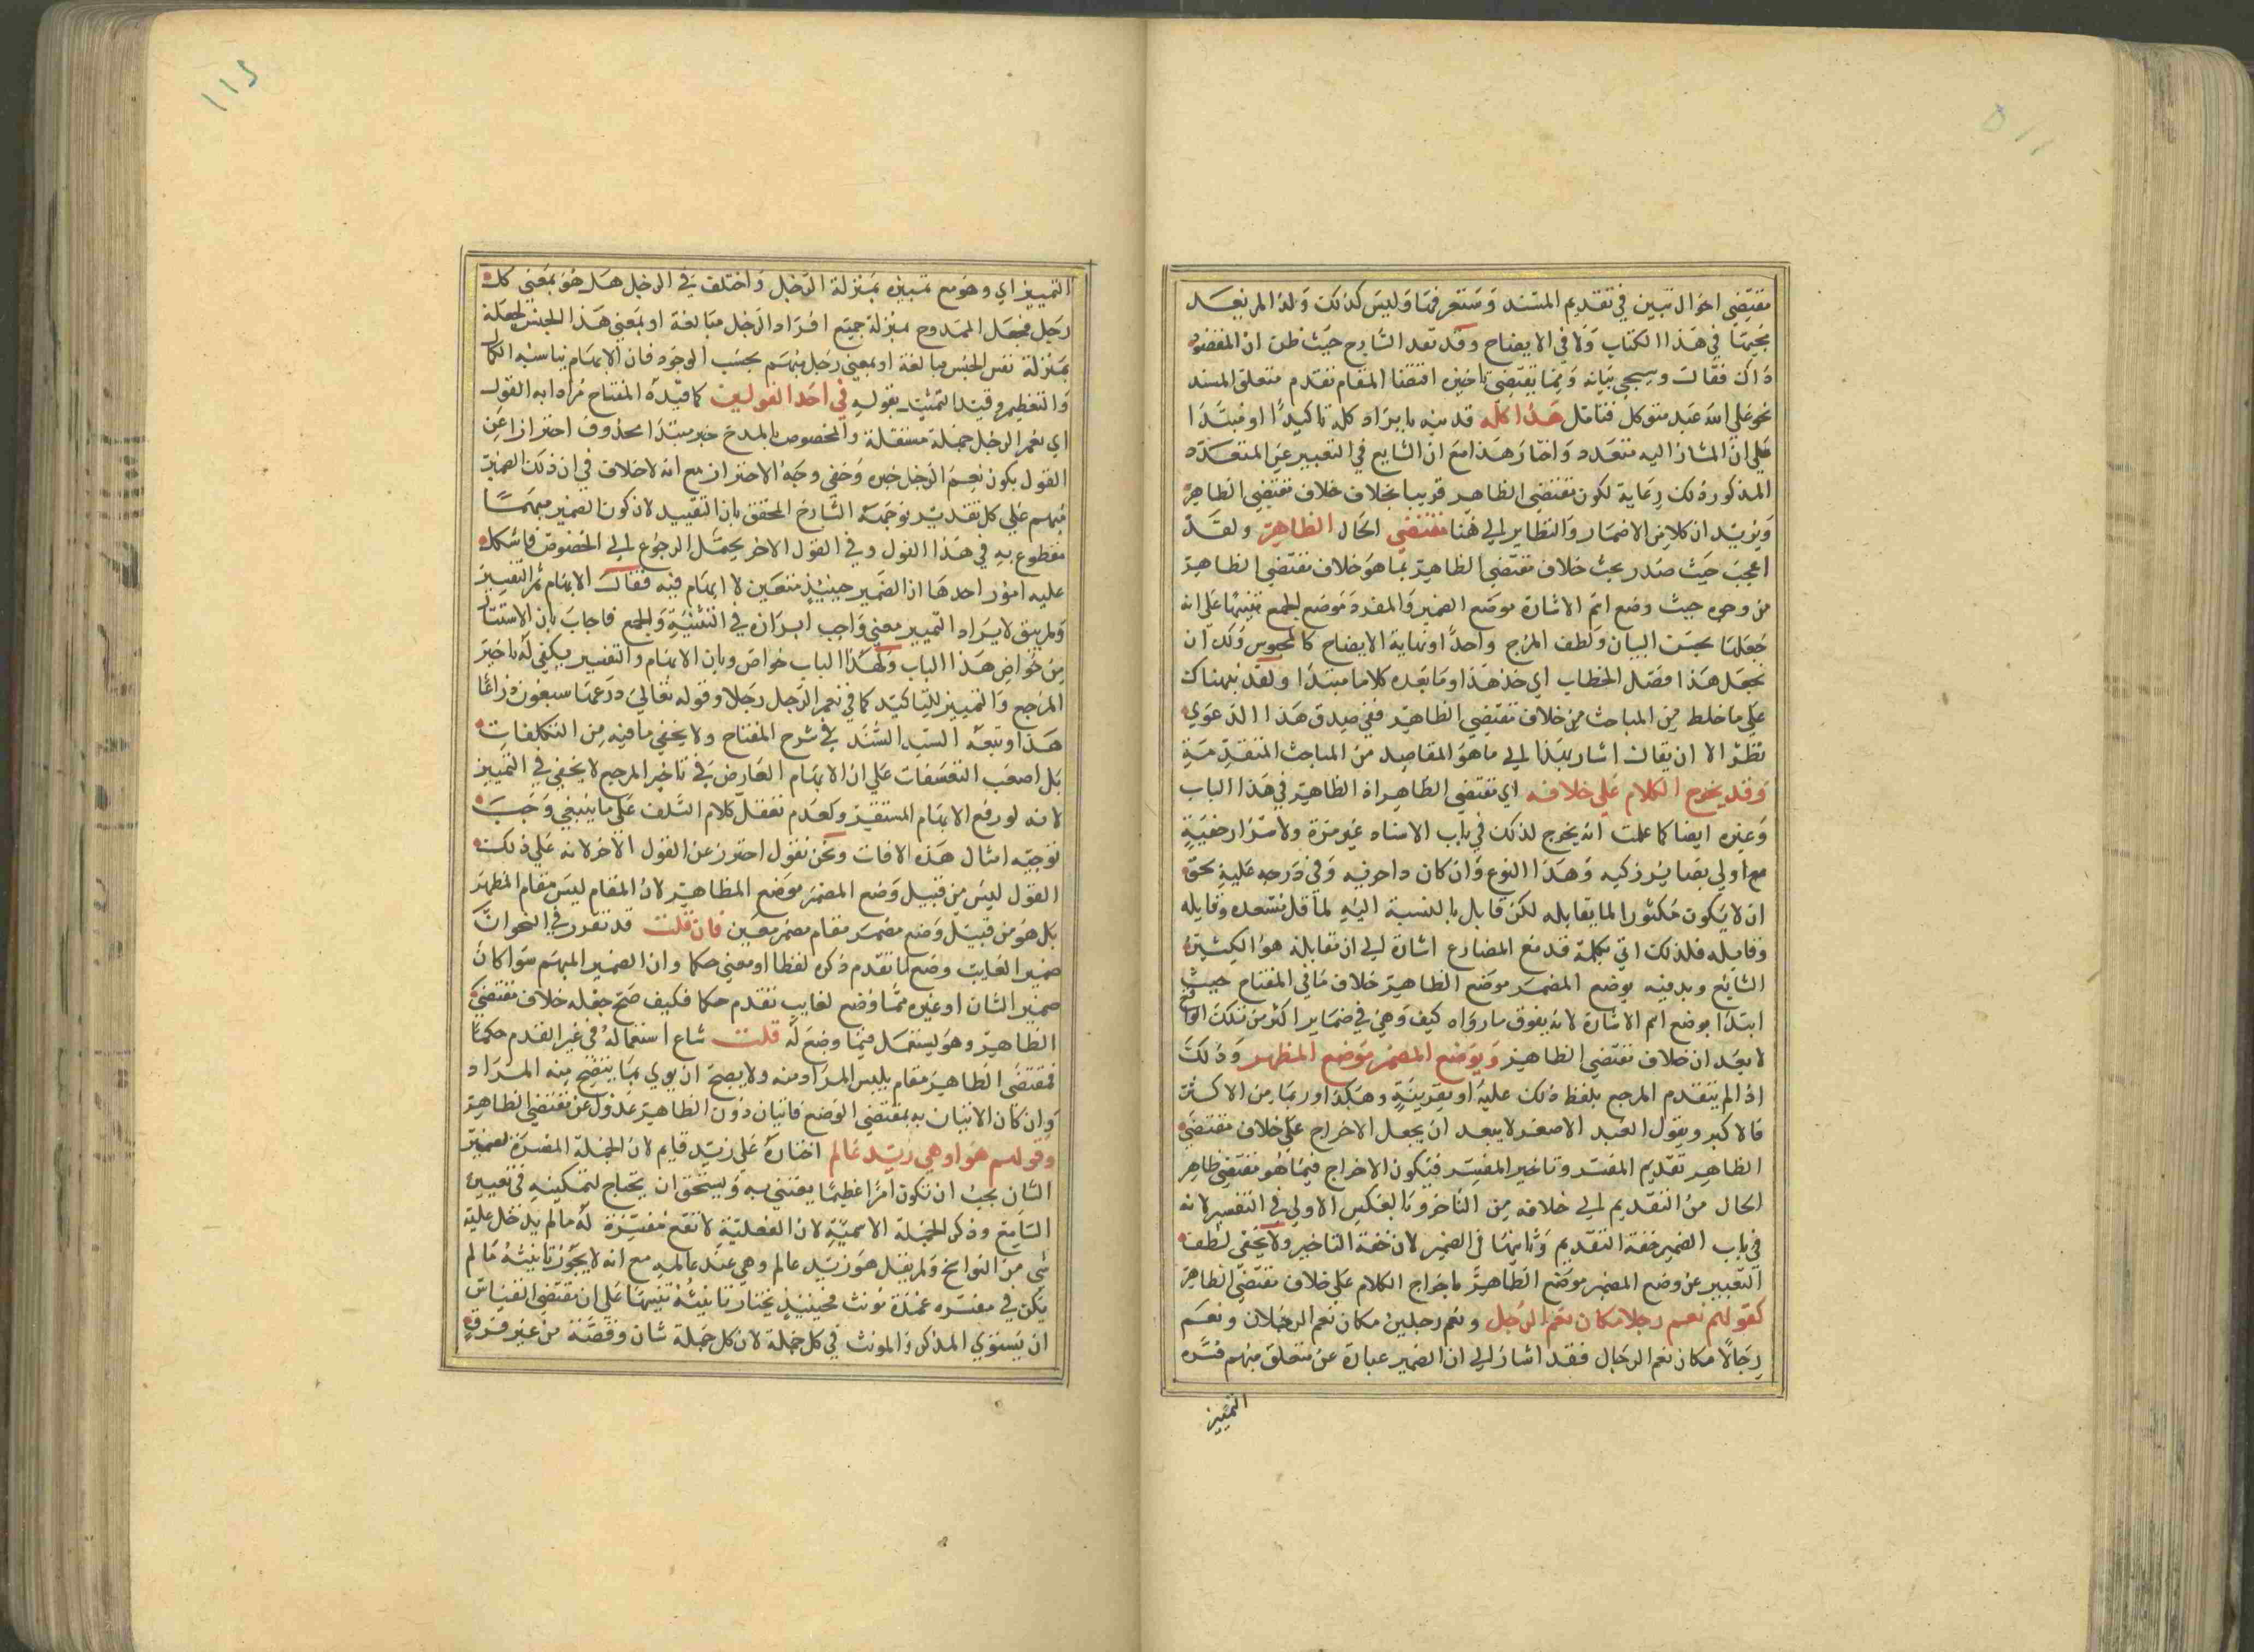 مقتضى احوال تبين في تقديم المسند وستعرفها وليس كذلك ولذا لم نبعد
في هذا الكتاب ولا في الايضاح وقد بعد الشارح حيث ظن ان المقصود
ذاك فقال وسيجي بيانه ومما يقتضي تاخيره اقتضا المقام تقدم متعلق المسند
نحو على الله عبد متوكل فتامل هذا كله قد نبه بايراد كله تاكيدا او مبتدا
على ان المشار اليه متعدد واختار هذا مع ان الشايع في التعبير عن المتعدد
المذكور ذلك رعاية لكون مقتضى الظاهر قريبا بخلاف خلاف مقتضى الظاهر
ويؤيد ان كلا من الاضمار والنظاير الى هنا مقتضى الحال الظاهر ولقد
اعجب حيث صدر بحث خلاف مقتضى الظاهر بما هو خلاف مقتضى الظاهر
من وجوه حيث وضع اسم الاشارة موضع الضمير والمفرد موضع الجمع تنبيها على انه
جعلها بحسن البيان ولطف المزج واحدا ونهاية الايضاح كالمحبوس ولك ان
تجعل هذا فصل الخطاب اي خذ هذا وما بعده كلاما مبتدا ولقد نبهناك
على ما خلط من المباحث من خلاف مقتضى الظاهر ففي صدق هذا الدعوى
نظر الا ان يقال اشار بهذا الى ما هو المقاصد من المباحث المتقدمة
وقد يخرج الكلام على خلافه اي مقتضى الظاهر اذ الظاهر في هذا الباب
وغيره ايضا كما علمت انه يخرج لذلك في باب الاسناد غير مرة ولا ستزار خفية
مع اولي بصاير زكيه وهذا النوع وان كان داحرفيه وفي درجه علية بحق
ان لا يكون مكثورا لما يقابله لكن قابل بالنسبة اليه لما قل تشعده وقايله
وقابله فلذلك اتى بكلمة قد مع المضارع اشارة الى ان مقابله هو الكثير
الشايع وبد فيه بوضع المضمر موضع الظاهر خلاف ما في المفتاح حيث
ابتدا بوضع اسم الاشارة لانه يفوق ما رواه كيف وهي في ضماير اكثر من تلك المواقع
لا بعد ان خلاف مقتضى الظاهر ويوضع المضمر موضع المظهر وذلك
اذ الم يتقدم المرجع بلفظ ذلك عليه او بقرينة وهكذا وربما من الاكثر
فالاكبر ويقول العبد الاصغر لا يبعد ان يجعل الاخراج على خلاف مقتضى
الظاهر تقديم المفسر وتاخير المفسر فيكون الاخراج فيما هو مقتضى ظاهر
الحال من التقديم الى خلافه من التاخر وبالعكس الاولى في التفسير لانه
في باب الضمير خفة التقديم وثانيها في الضمير لان خفة التاخير ولا يخفى لطف
التعبير عن وضع المضمر موضع الظاهر باخراج الكلام على خلاف مقتضى الظاهر
كقولهم نعم رجلا مكان نعم الرجل ونعم رجلين مكان نعم الرجلان ونعم
رجالا مكان نعم الرجال فقد اشار الى ان الضمير عبارة عن متعلق مبهم فسره
التمييز
التمييز اي وهو مع تمييزه بمنزلة الرجل واختلف في الرجل هل هو بمعنى كل
رجل فجعل الممدوح بمنزلة جميع افراد الرجل مبالغة او بمعنى هذا الجنس لجعله
بمنزلة نفس الجنس مبالغة او بمعنى رجل مبهم بحسب الوجود فان الابهام يناسب الكمال
والتعظيم وقيد التمثيل بقوله في احد القولين كما قيده المفتاح مرادا به القول
اي نعم الرجل جملة مستقلة والمخصوص بالمدح خبر مبتدا محذوف احترازا عن
القول بكون نعم الرجل خبره وخفي وجه الاحتراز مع انه لا خلاف في ان ذلك الضمير
مبهم على كل تقدير توجهه الشارح المحقق بان التقييد لان كون الضمير مبهما
مقطوع به في هذا القول وفي القول الاخر يحتمل الرجوع الى المخصوص فاشكل
عليه امور احدها ان الضمير حينئذ متعين لا ابهام فيه فقال الابهام ثم التفسير
ولم يبق لايراد التمييز معنى واجب ابرازه في التثنية والجمع فاجاب بان الاستتار
من خواص هذا الباب ولهذا الباب خواص وبان الابهام والتفسير يكفي له تاخير
المرجع والتمييز للتاكيد كما في نعم الرجل رجلا وقوله تعالى درعها سبعون ذراعا
هذا وتبعه السيد السند في شرح المفتاح ولا يخفى ما فيه من التكلفات
بل اصعب التعسفات على ان الابهام العارض في تاخير المرجع لا يخفى في التمييز
لانه لو رفع الابهام المستقر وكعدم تعقل كلام السلف على ما ينبغي وجب
توجيه امثال هذه الافات ونحن نقول احترز عن القول الاخر لانه على ذلك
القول ليس من قبيل وضع المضمر موضع المظاهر لان المقام ليس مقام المظهر
بل هو من قبيل وضع مضمر مقام مضمر معين فان قلت قد تقرر في النحو ان
ضمير الغايب وضع لما تقدم ذكره لفظا او معنى حكما وان الضمير المبهم سوا كان
ضمير الشان او غيره مما وضع لغايب تقدم حكما فكيف صح جعله خلاف مقتضى
الظاهر وهو يستعمل فيما وضع له قلت شاع استعماله في غير القدم حكما
فمقتضى الظاهر مقام يلبس المراد منه ولا يصح ان يوى بما يتضح منه المراد
وان كان الاتيان به بمقتضى الوضع فاتيان دون الظاهر عدول عن مقتضى الظاهر
وقولهم هو او هي زيد عالم اختاره على زيد قايم لان الجملة المفسرة لضمير
الشان يجب ان تكون امرا عظيما يعتنى به ويستحق ان يحتاج لتمكينه في تعيين
السامع وذكر الجملة الاسمية لان الفعلية لا تقع مفسرة له ما لم يدخل عليه
شي من النواسخ ولم يقل هو زيد عالم وهي عند عالمه مع انه لا يجوز تانيثه ما لم
يكن في مفسره عمدة مونث فحينئذ يختار تانيثه تنبيها على ان مقتضى القياس
ان يستوي المذكر والمونث في كل جملة لان كل جملة شان وقصة من غير فرق